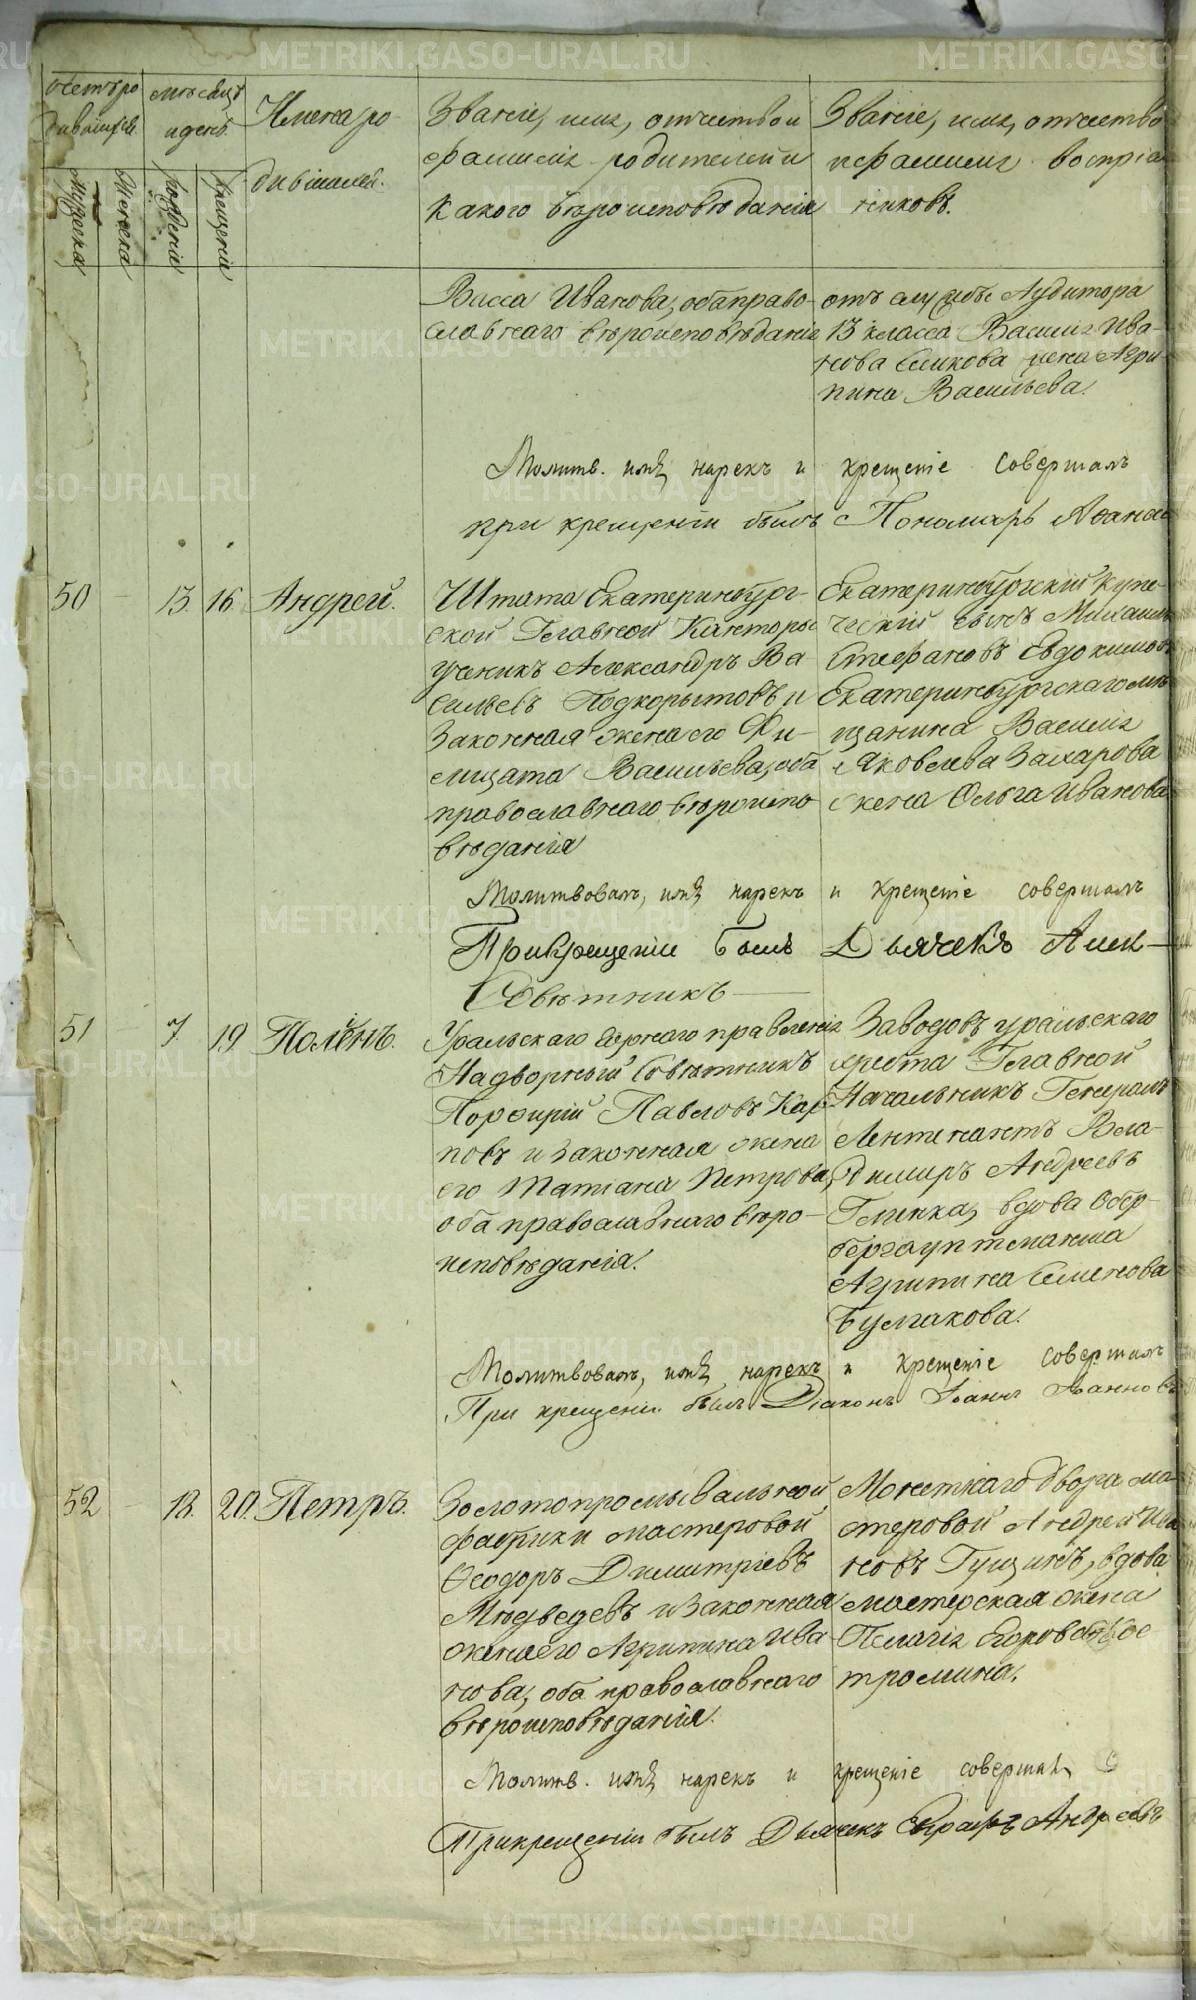 METRIKI.GASO-URAL.RU
Счетъ ро
дившихся.
мѣсяцъ
и день
Имена ро-
дившихся.
Званіе, имя, отчество и
фамилія родителей и
какого вѣроисповѣданія
Званіе, имя, отчество
и фамилія воспріем
никовъ.
Мужеска
Женска
рожденія
крещенія
Васса Иванова, оба право-
славнаго вѣроисповѣданія
отъ службы Аудитора
13 класса Василія Ива-
нова жена Агри-
пина Васильева.
Молитв. имя нарекъ и крещеніе совершалъ
при крещеніи былъ Пономарь
50 - 13 16 Андрей.
Штата Екатеринбург-
ской Главной Канторы
ученикъ Александръ Ва-
сильевъ Подкорытовъ и
Законная жена его Фи-
лицата Васильева, оба
православнаго вѣроиспо
вѣданія
Екатеринбургскій купе-
ческій сынъ Михаилъ
Стефановъ Евдокимовъ
Екатеринбургскаго мѣ
щанина Василія
Яковлева Захарова
жена Ольга Иванова
Молитвовалъ, имя нарекъ и крещеніе совершалъ
При крещеніи былъ Дьячекъ Алек-
Совѣтникъ
51 7 19 Полѣнъ.
Уральскаго Горнаго правленія
Надворный Совѣтникъ
Порфирій Павловъ Кар
повъ и законная жена
его Татіана Петрова,
оба православнаго вѣро-
исповѣданія.
Заводовъ уральскаго
хребта Главной
Начальникъ Генералъ
Лентенантъ Вла-
димиръ Андреевъ
Глинка, вдова Обер-
бергауптманша
Агрипина Семенова
Булгакова.
Молитвовалъ, имя нарекъ и крещеніе совершалъ
При крещеніи былъ Діаконъ Іоаннъ Іоанновъ
52 - 18. 20. Петръ.
Золотопромывальной
фабрики мастеровой
Ѳеодоръ Димитріевъ
Медведевъ и Законная
жена его Агрипина Ива
нова, оба православнаго
вѣроисповѣданія.
Монетнаго двора ма-
стеровой Андрей Ива
новъ Гущинъ, вдова
мастерская жена
Пелагія Егорова Ко
стромина.
Молитв. имя нарекъ и крещеніе совершалъ С
При крещеніи былъ Дьячекъ Евграфъ Андреевъ